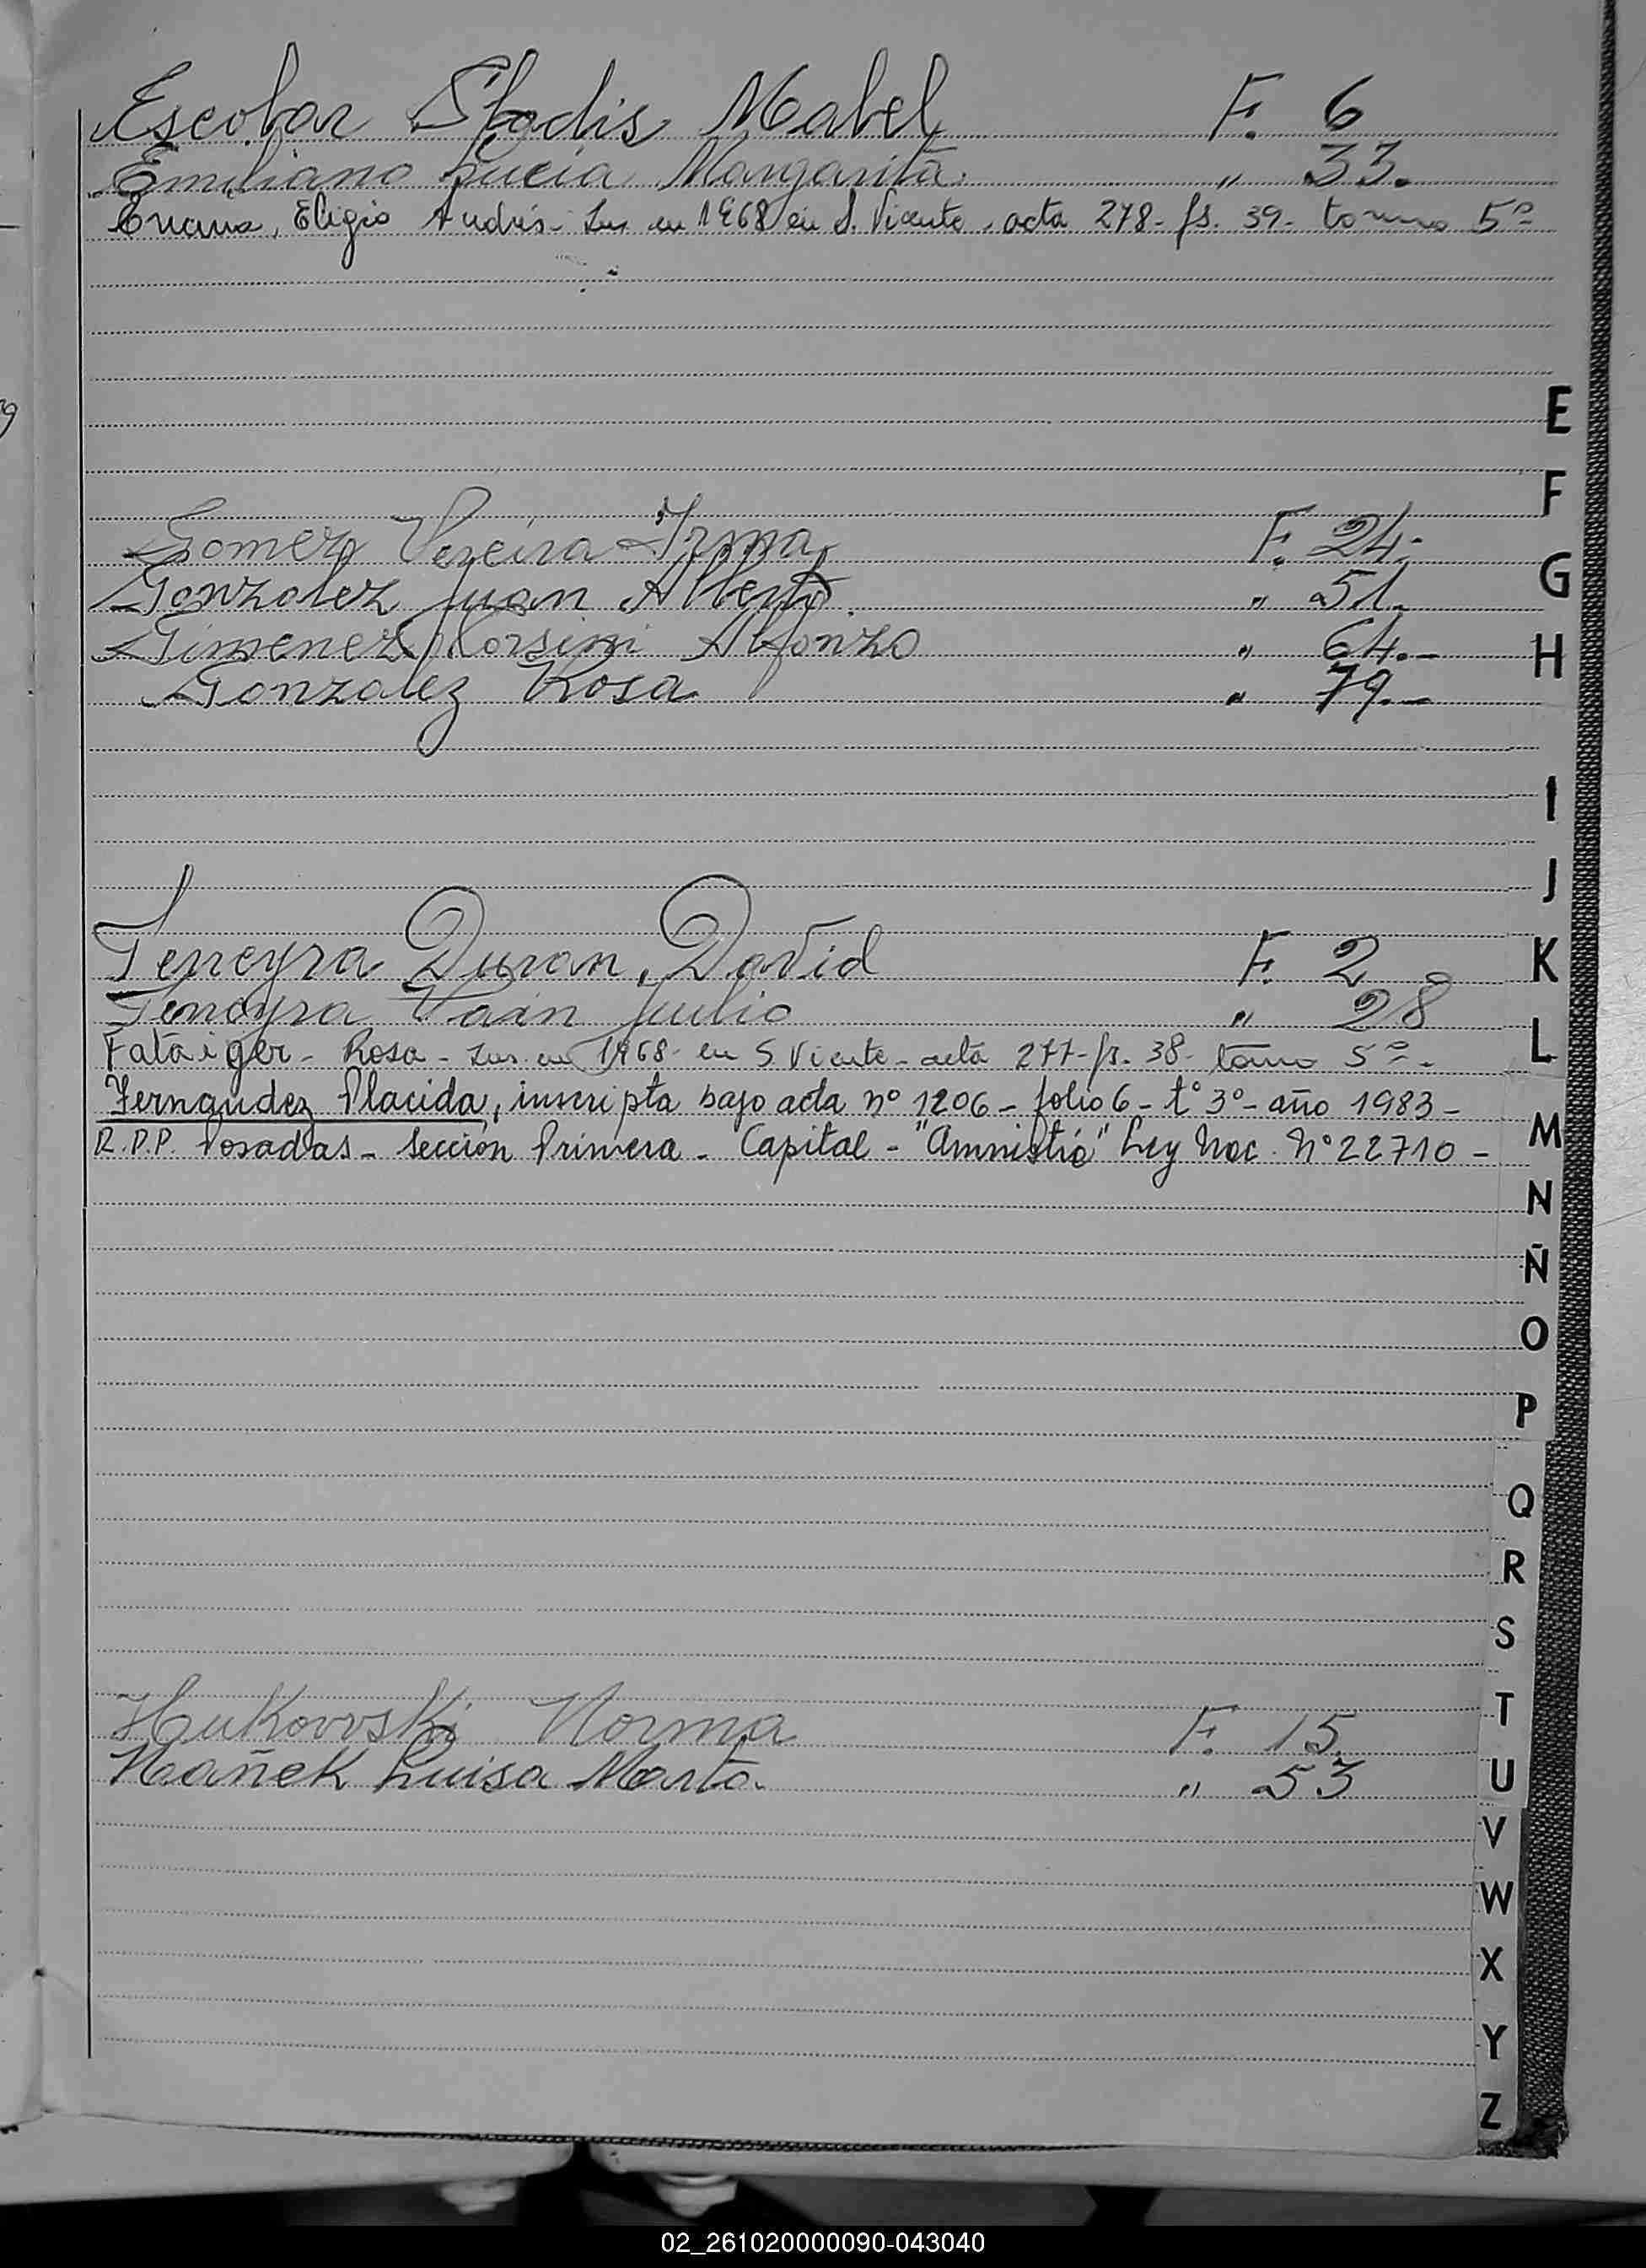 Escobar Gladis Mabel F. 6
Emiliano Lucia Margarita. " 33.
Eligio Andrés - Ins en 1968 en S. Vicente - acta 278 - fs. 39 - tomo 5º
E
F
Gomez Pereira Irma F. 24.-
G
Gonzalez Juan Alberto. " 51.
Gimenez Alfonzo " 64.-
H
Gonzalez Rosa " 79.-
I
J
Ferreyra Duran, David F. 2
K
Julio " 28
L
Rosa - Ins. en 1968 - en S. Vicente - acta 277 - fs. 38 - tomo 5º -
Fernandez Placida, inscripta bajo acta nº 1206 - folio 6 - tº 3º - año 1983 -
M
R.P.P. Posadas - Sección Primera - Capital - "Amnistía" Ley Nac. Nº 22710 -
N
Ñ
O
P
Q
R
S
T
Norma F. 15.
Hañek Luisa Marta. " 53
U
V
W
X
Y
Z
02_261020000090-043040